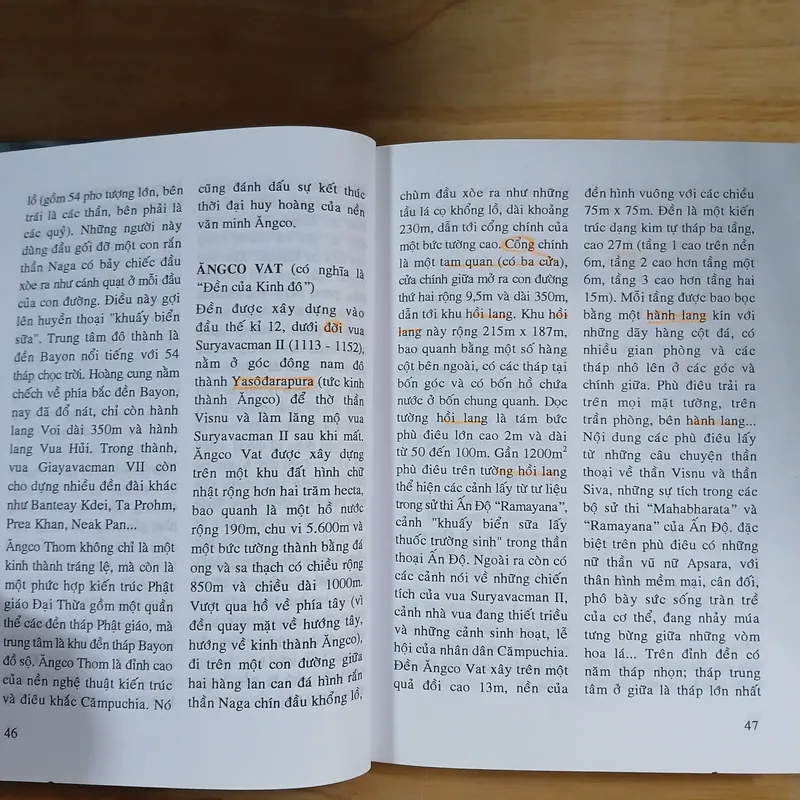 lồ (gồm 54 pho tượng lớn, bên
trái là các thần, bên phải là
các quỷ). Những người này
dùng đầu gối đỡ một con rắn
thần Naga có bảy chiếc đầu
xòe ra như cánh quạt ở mỗi đầu
của con đường. Điều này gợi
lên huyền thoại "khuấy biển
sữa". Trung tâm đô thành là
đền Bayon nổi tiếng với 54
tháp chọc trời. Hoàng cung nằm
chếch về phía bắc đền Bayon,
nay đã đổ nát, chỉ còn hành
lang Voi dài 350m và hành
lang Vua Hủi. Trong thành,
vua Giayavacman VII còn
cho dựng nhiều đền đài khác
như Banteay Kdei, Ta Prohm,
Prea Khan, Neak Pan...
Ăngco Thom không chỉ là một
kinh thành tráng lệ, mà còn là
một phức hợp kiến trúc Phật
giáo Đại Thừa gồm một quần
thể các đền tháp Phật giáo, mà
trung tâm là khu đền tháp Bayon
đồ sộ. Ăngco Thom là đỉnh cao
của nền nghệ thuật kiến trúc
và điêu khắc Cămpuchia. Nó
46
cũng đánh dấu sự kết thúc
thời đại huy hoàng của nền
văn minh Ăngco.
ĂNGCO VAT (có nghĩa là
“Đền của Kinh đô”)
Đền được xây dựng vào
đầu thế kỉ 12, dưới đời vua
Suryavacman II (1113 - 1152),
nằm ở góc đông nam đô
thành Yasôdarapura (tức kinh
thành Ăngco) để thờ thần
Visnu và làm lăng mộ vua
Suryavacman II sau khi mất.
Ăngco Vat được xây dựng
trên một khu đất hình chữ
nhật rộng hơn hai trăm hecta,
bao quanh là một hồ nước
rộng 190m, chu vi 5.600m và
một bức tường thành bằng đá
ong và sa thạch có chiều rộng
850m và chiều dài 1000m.
Vượt qua hồ về phía tây (vì
đền quay mặt về hướng tây,
hướng về kinh thành Ăngco),
đi trên một con đường giữa
hai hàng lan can đá hình rắn
thần Naga chín đầu khổng lồ,
chùm đầu xòe ra như những
tầu lá cọ khổng lồ, dài khoảng
230m, dẫn tới cổng chính của
một bức tường cao. Cổng chính
là một tam quan (có ba cửa),
cửa chính giữa mở ra con đường
thứ hai rộng 9,5m và dài 350m,
dẫn tới khu hồi lang. Khu hồi
lang này rộng 215m x 187m,
bao quanh bằng một số hàng
cột bên ngoài, có các tháp tại
bốn góc và có bốn hồ chứa
nước ở bốn chung quanh. Dọc
tường hồi lang là tám bức
phù điêu lớn cao 2m và dài
từ 50 đến 100m. Gần 1200m²
phù điêu trên tường hồi lang
thể hiện các cảnh lấy từ tư liệu
trong sử thi Ấn Độ "Ramayana",
cảnh "khuấy biển sữa lấy
thuốc trường sinh" trong thần
thoại Ấn Độ. Ngoài ra còn có
các cảnh nói về những chiến
tích của vua Suryavacman II,
cảnh nhà vua đang thiết triều
và những cảnh sinh hoạt, lễ
hội của nhân dân Cămpuchia.
Đền Ăngco Vat xây trên một
quả đồi cao 13m, nền của
đền hình vuông với các chiều
75m x 75m. Đền là một kiến
trúc dạng kim tự tháp ba tầng,
cao 27m (tầng 1 cao trên nền
6m, tầng 2 cao hơn tầng một
6m, tầng 3 cao hơn tầng hai
15m). Mỗi tầng được bao bọc
bằng một hành lang kín với
những dãy hàng cột đá, có
nhiều gian phòng và các
tháp nhô lên ở các góc và
chính giữa. Phù điêu trải ra
trên mọi mặt tường, trên
trần phòng, bên hành lang...
Nội dung các phù điêu lấy
từ những câu chuyện thần
thoại về thần Visnu và thần
Siva, những sự tích trong các
bộ sử thi “Mahabharata” và
“Ramayana” của Ấn Độ. đặc
biệt trên phù điêu có những
nữ thần vũ nữ Apsara, với
thân hình mềm mại, cân đối,
phô bày sức sống tràn trề
của cơ thể, đang nhảy múa
tưng bừng giữa những vòm
hoa lá... Trên đỉnh đền có
năm tháp nhọn; tháp trung
tâm ở giữa là tháp lớn nhất
47